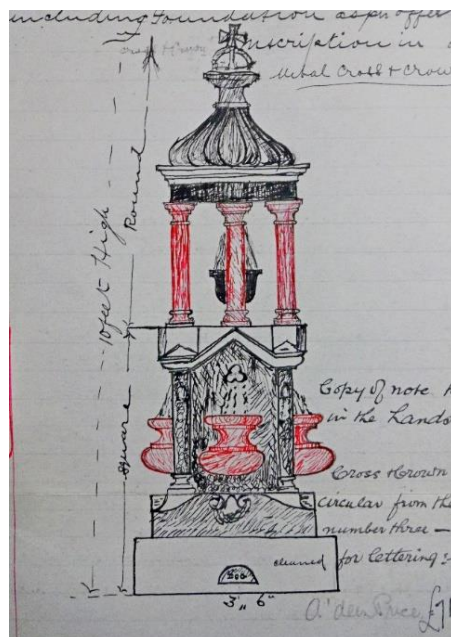 including Foundation as per offer
Inscription in
Metal Cross & Crow
10 feet High
Round
square
Copy of note
in the Lands
Cross & Crown
circular from the
number three —
cleaned
for lettering
3" 6"